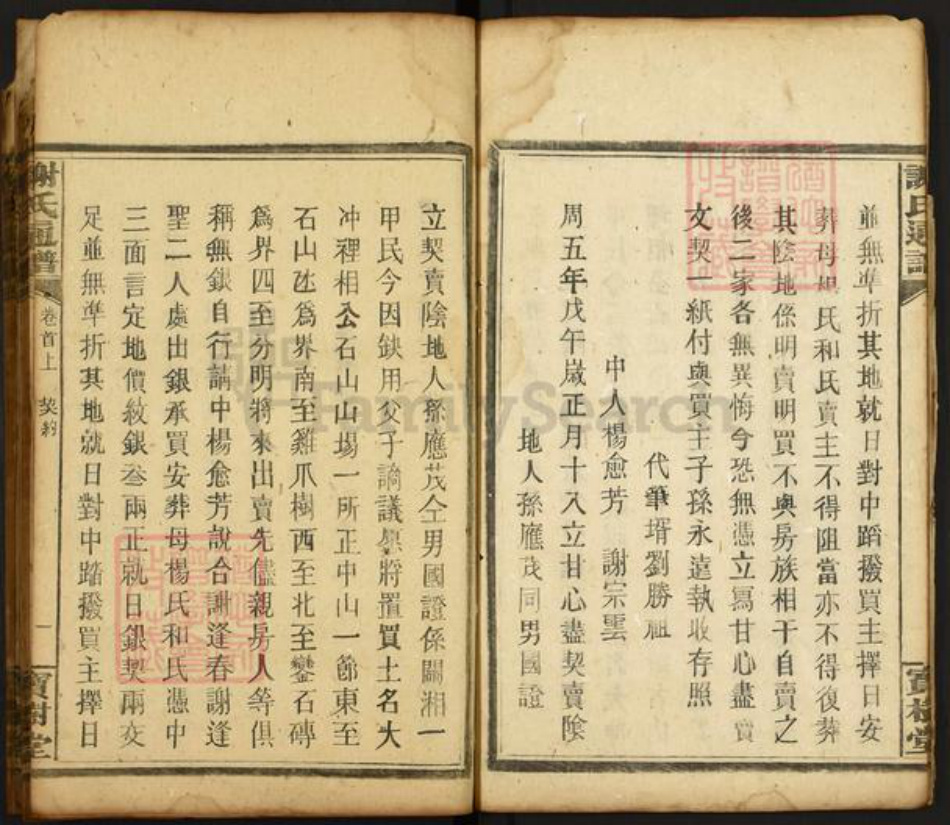 並無準折其地就日對中蹈撥買主擇日安
葬母楊氏和氏賣主不得阻當亦不得復葬
其陰地係明賣明買不與房族相干自賣之
後二家各無異悔今恐無憑立寫甘心盡賣
文契一紙付與買主子孫永遠執收存照
代筆壻劉勝祖
中人楊愈芳 謝宗雲
周五年戊午歲正月十入立甘心盡契賣陰
地人孫應茂同男國證
謝氏通譜
寶樹堂
立契賣陰地人孫應茂仝男國證係關湘一
甲民今因缺用父子謫議愿將置買土名大
冲裡相公石山山場一所正中山一節東至
石山迯為界南至雞爪樹西至北至鑾石磚
為界四至分明將來出賣先儘親房人等俱
稱無銀自行請中楊愈芳說合謝逢春謝逢
聖二人處出銀承買安葬母楊氏和氏憑中
三面言定地價紋銀叁兩正就日銀契兩交
足並無準折其地就日對中踏撥買主擇日
謝氏通譜 卷首上 契約 一 寶樹堂
FamilySearch